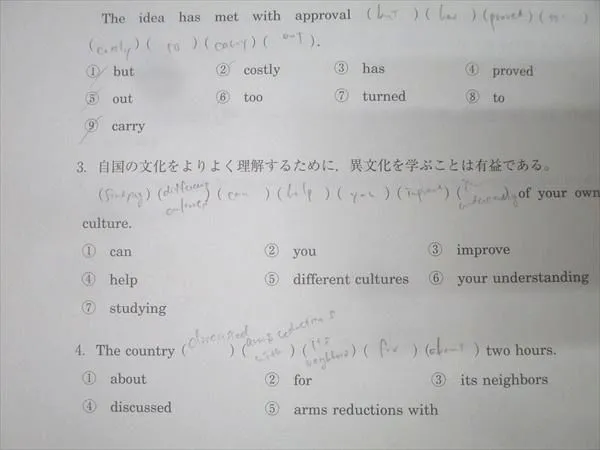 The idea has met with approval (but)(has)(proved)(too)
(costly)(to)(carry)(out).
① but ② costly ③ has ④ proved
⑤ out ⑥ too ⑦ turned ⑧ to
⑨ carry
3. 自国の文化をよりよく理解するために，異文化を学ぶことは有益である。
(studying)(different cultures)(can)(help)(you)(improve)(your understanding) of your own
culture.
① can ② you ③ improve
④ help ⑤ different cultures ⑥ your understanding
⑦ studying
4. The country (discussed)(arms reductions with)(its neighbors)(for)(about) two hours.
① about ② for ③ its neighbors
④ discussed ⑤ arms reductions with